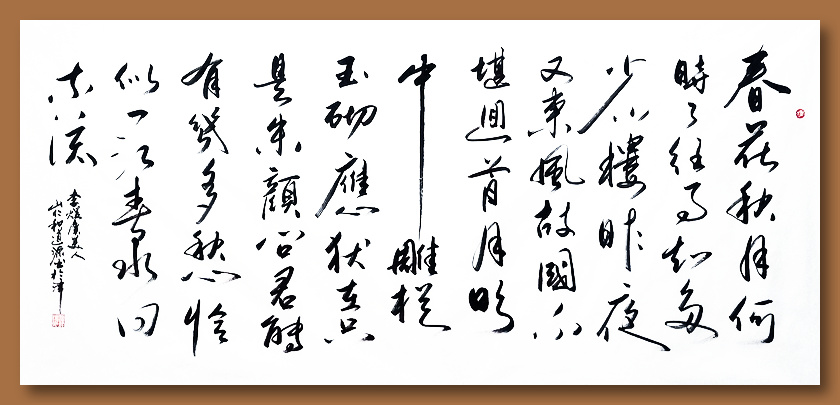 春花秋月何
時了往事知多
少小樓昨夜
又東風故國不
堪迴首月明
中雕栏
玉砌應犹在只
是朱顏问君能
有幾多愁恰
似一江春水向
东流
李煜虞美人
道源书於津